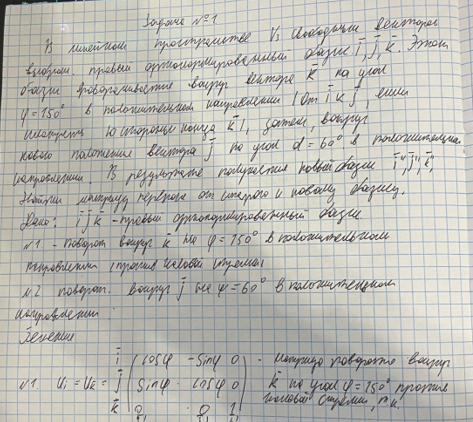 Задача №1
В линейном пространстве V₃ свободных векторов
выбран правый ортонормированный базис i̅, j̅, k̅. Этот
базис поворачивается вокруг вектора k̅ на угол
φ=150° в положительном направлении (От i̅ к j̅, если
смотреть со стороны конца k̅), затем, вокруг
нового положения вектора j̅ на угол α=60° в положительном
направлении. В результате получается новый базис i̅", j̅", k̅"
Найти матрицу перехода от старого к новому базису.
Дано: i̅ j̅ k̅ - правый ортонормированный базис
№1. - Поворот вокруг k̅ на φ=150° в положительном
направлении (против часовой стрелки)
№2 поворот. Вокруг j̅ на ψ=60° в положительном
направлении.
Решение
i̅ ( cosφ -sinφ 0 ) - матрица поворота вокруг
№1. U₁ = = j̅ ( sinφ cosφ 0 ) k̅ на угол φ=150° против
k̅ ( 0 0 1 ) часовой стрелки, т.к.